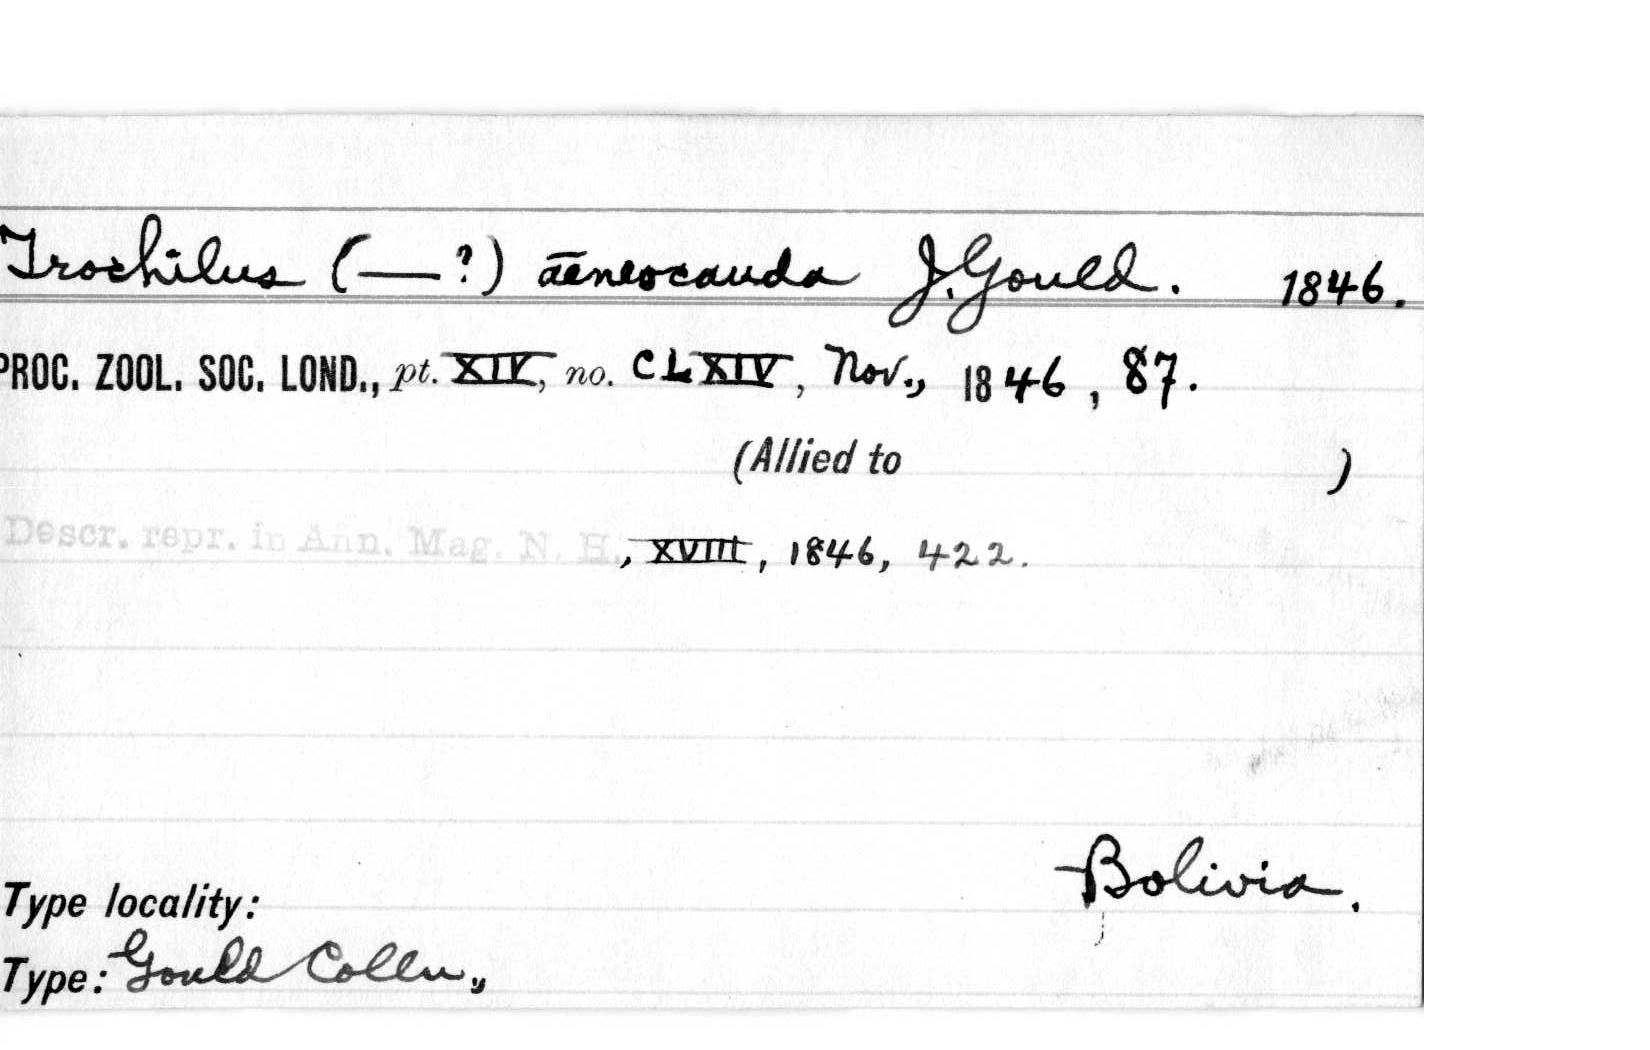 Trochilus (— ?) aēneocauda J. Gould. 1846.
PROC. ZOOL. SOC. LOND., pt. XIV, no. CLXIV, Nov., 1846, 87.
(Allied to )
Descr. repr. in Ann. Mag. N. H., XVIII, 1846, 422.
Bolivia.
Type locality:
Type: Gould Colln.,